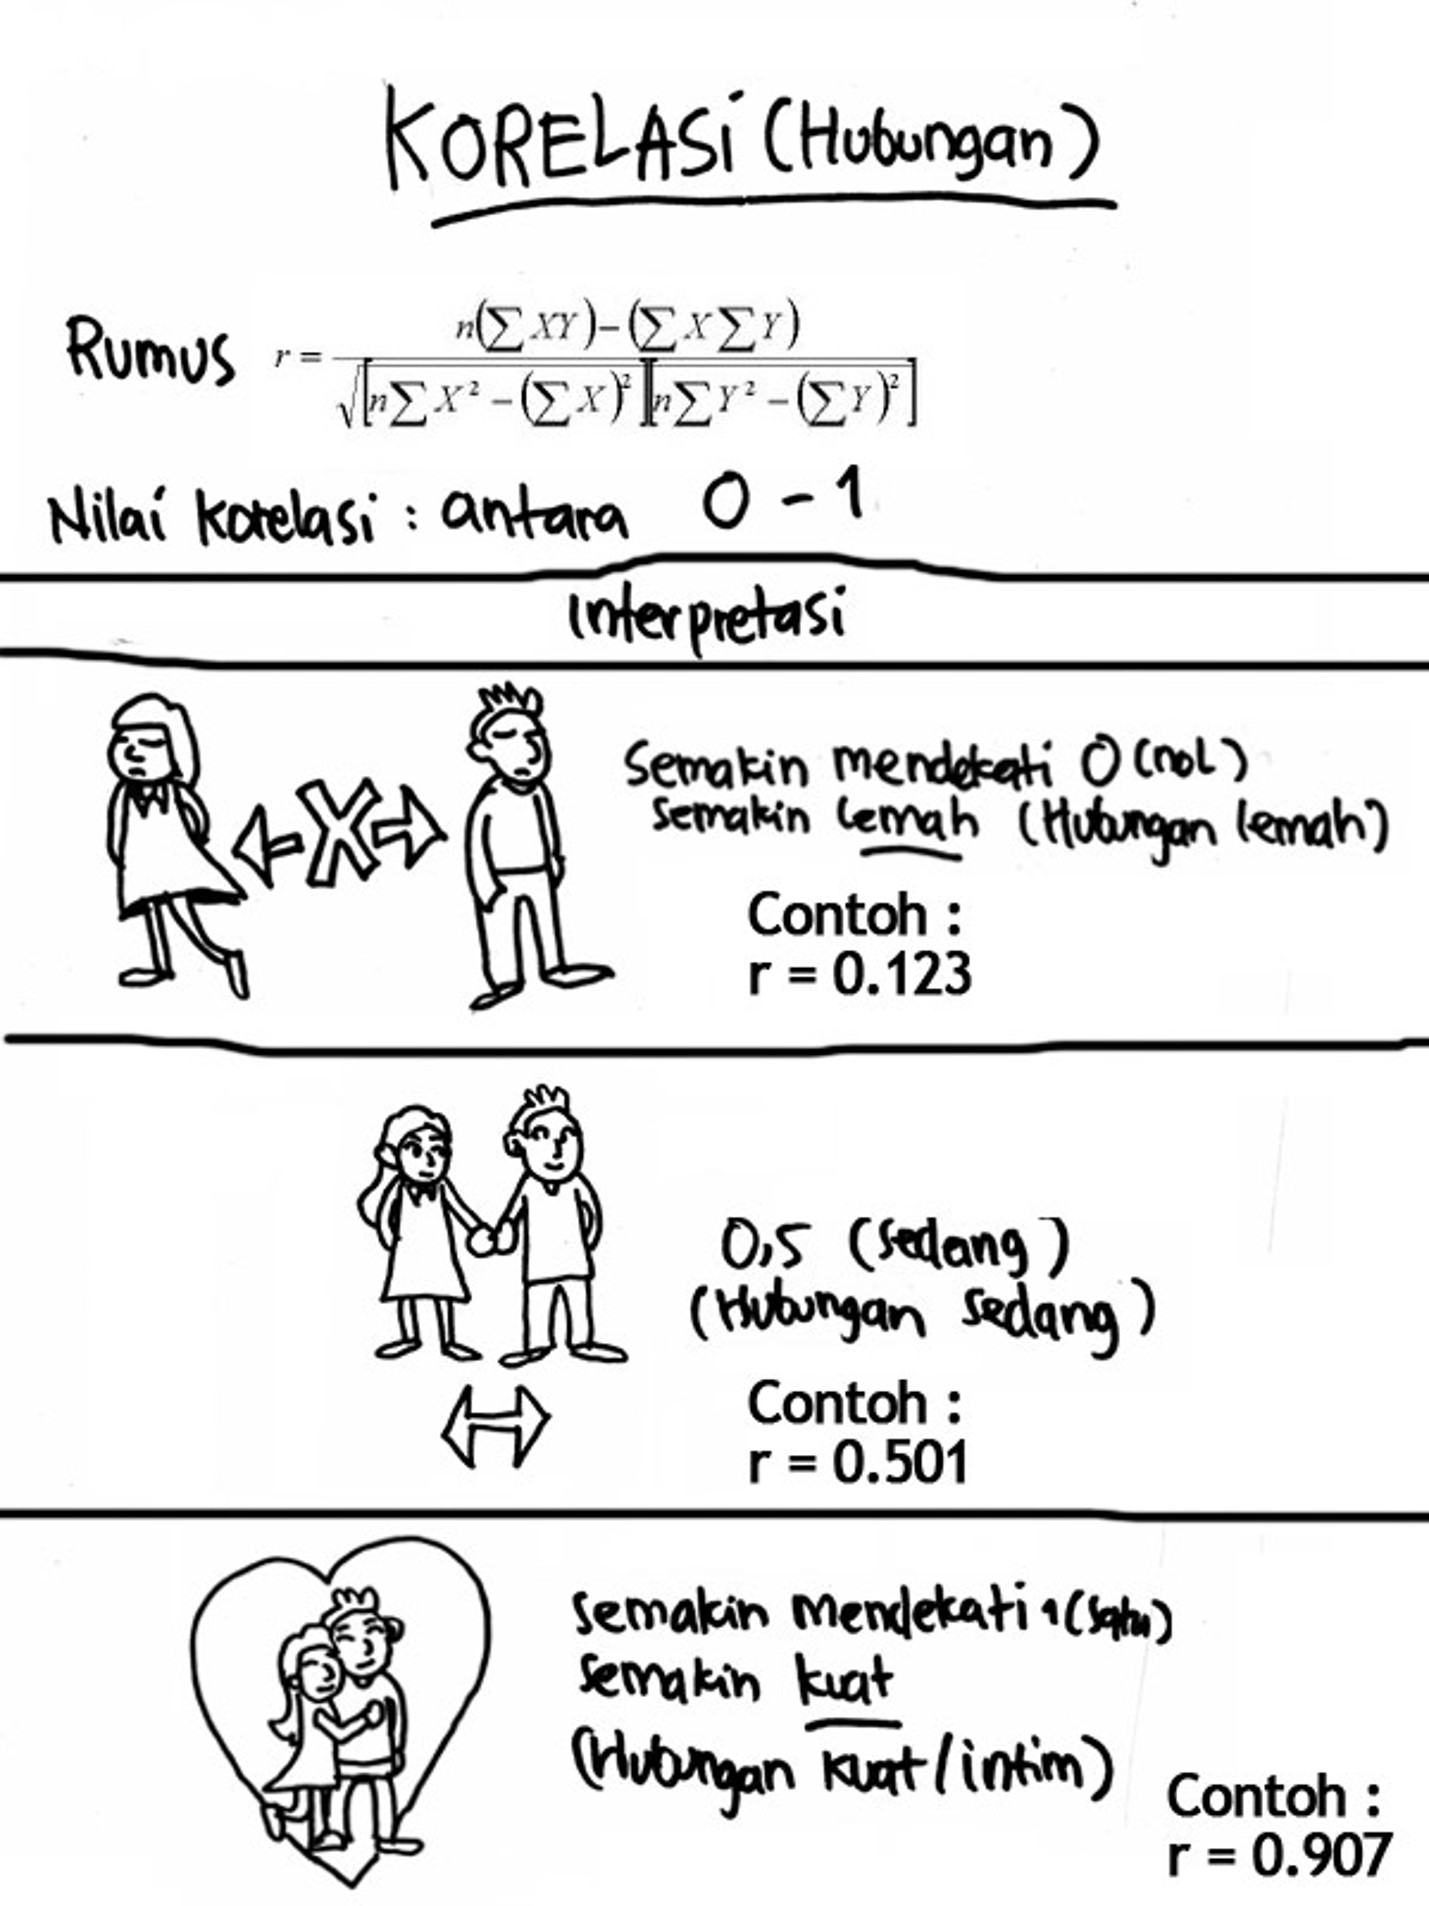 KORELASi (Hubungan)
Rumus r = n(∑XY)–(∑X∑Y) / √[n∑X² – (∑X)²][n∑Y² – (∑Y)²]
Nilai korelasi : antara 0 – 1
Interpretasi
Semakin mendekati 0 (nol)
semakin lemah (Hubungan lemah)
Contoh :
r = 0.123
0,5 (sedang)
(Hubungan sedang)
Contoh :
r = 0.501
semakin mendekati 1 (satu)
semakin kuat
(Hubungan kuat/intim)
Contoh :
r = 0.907